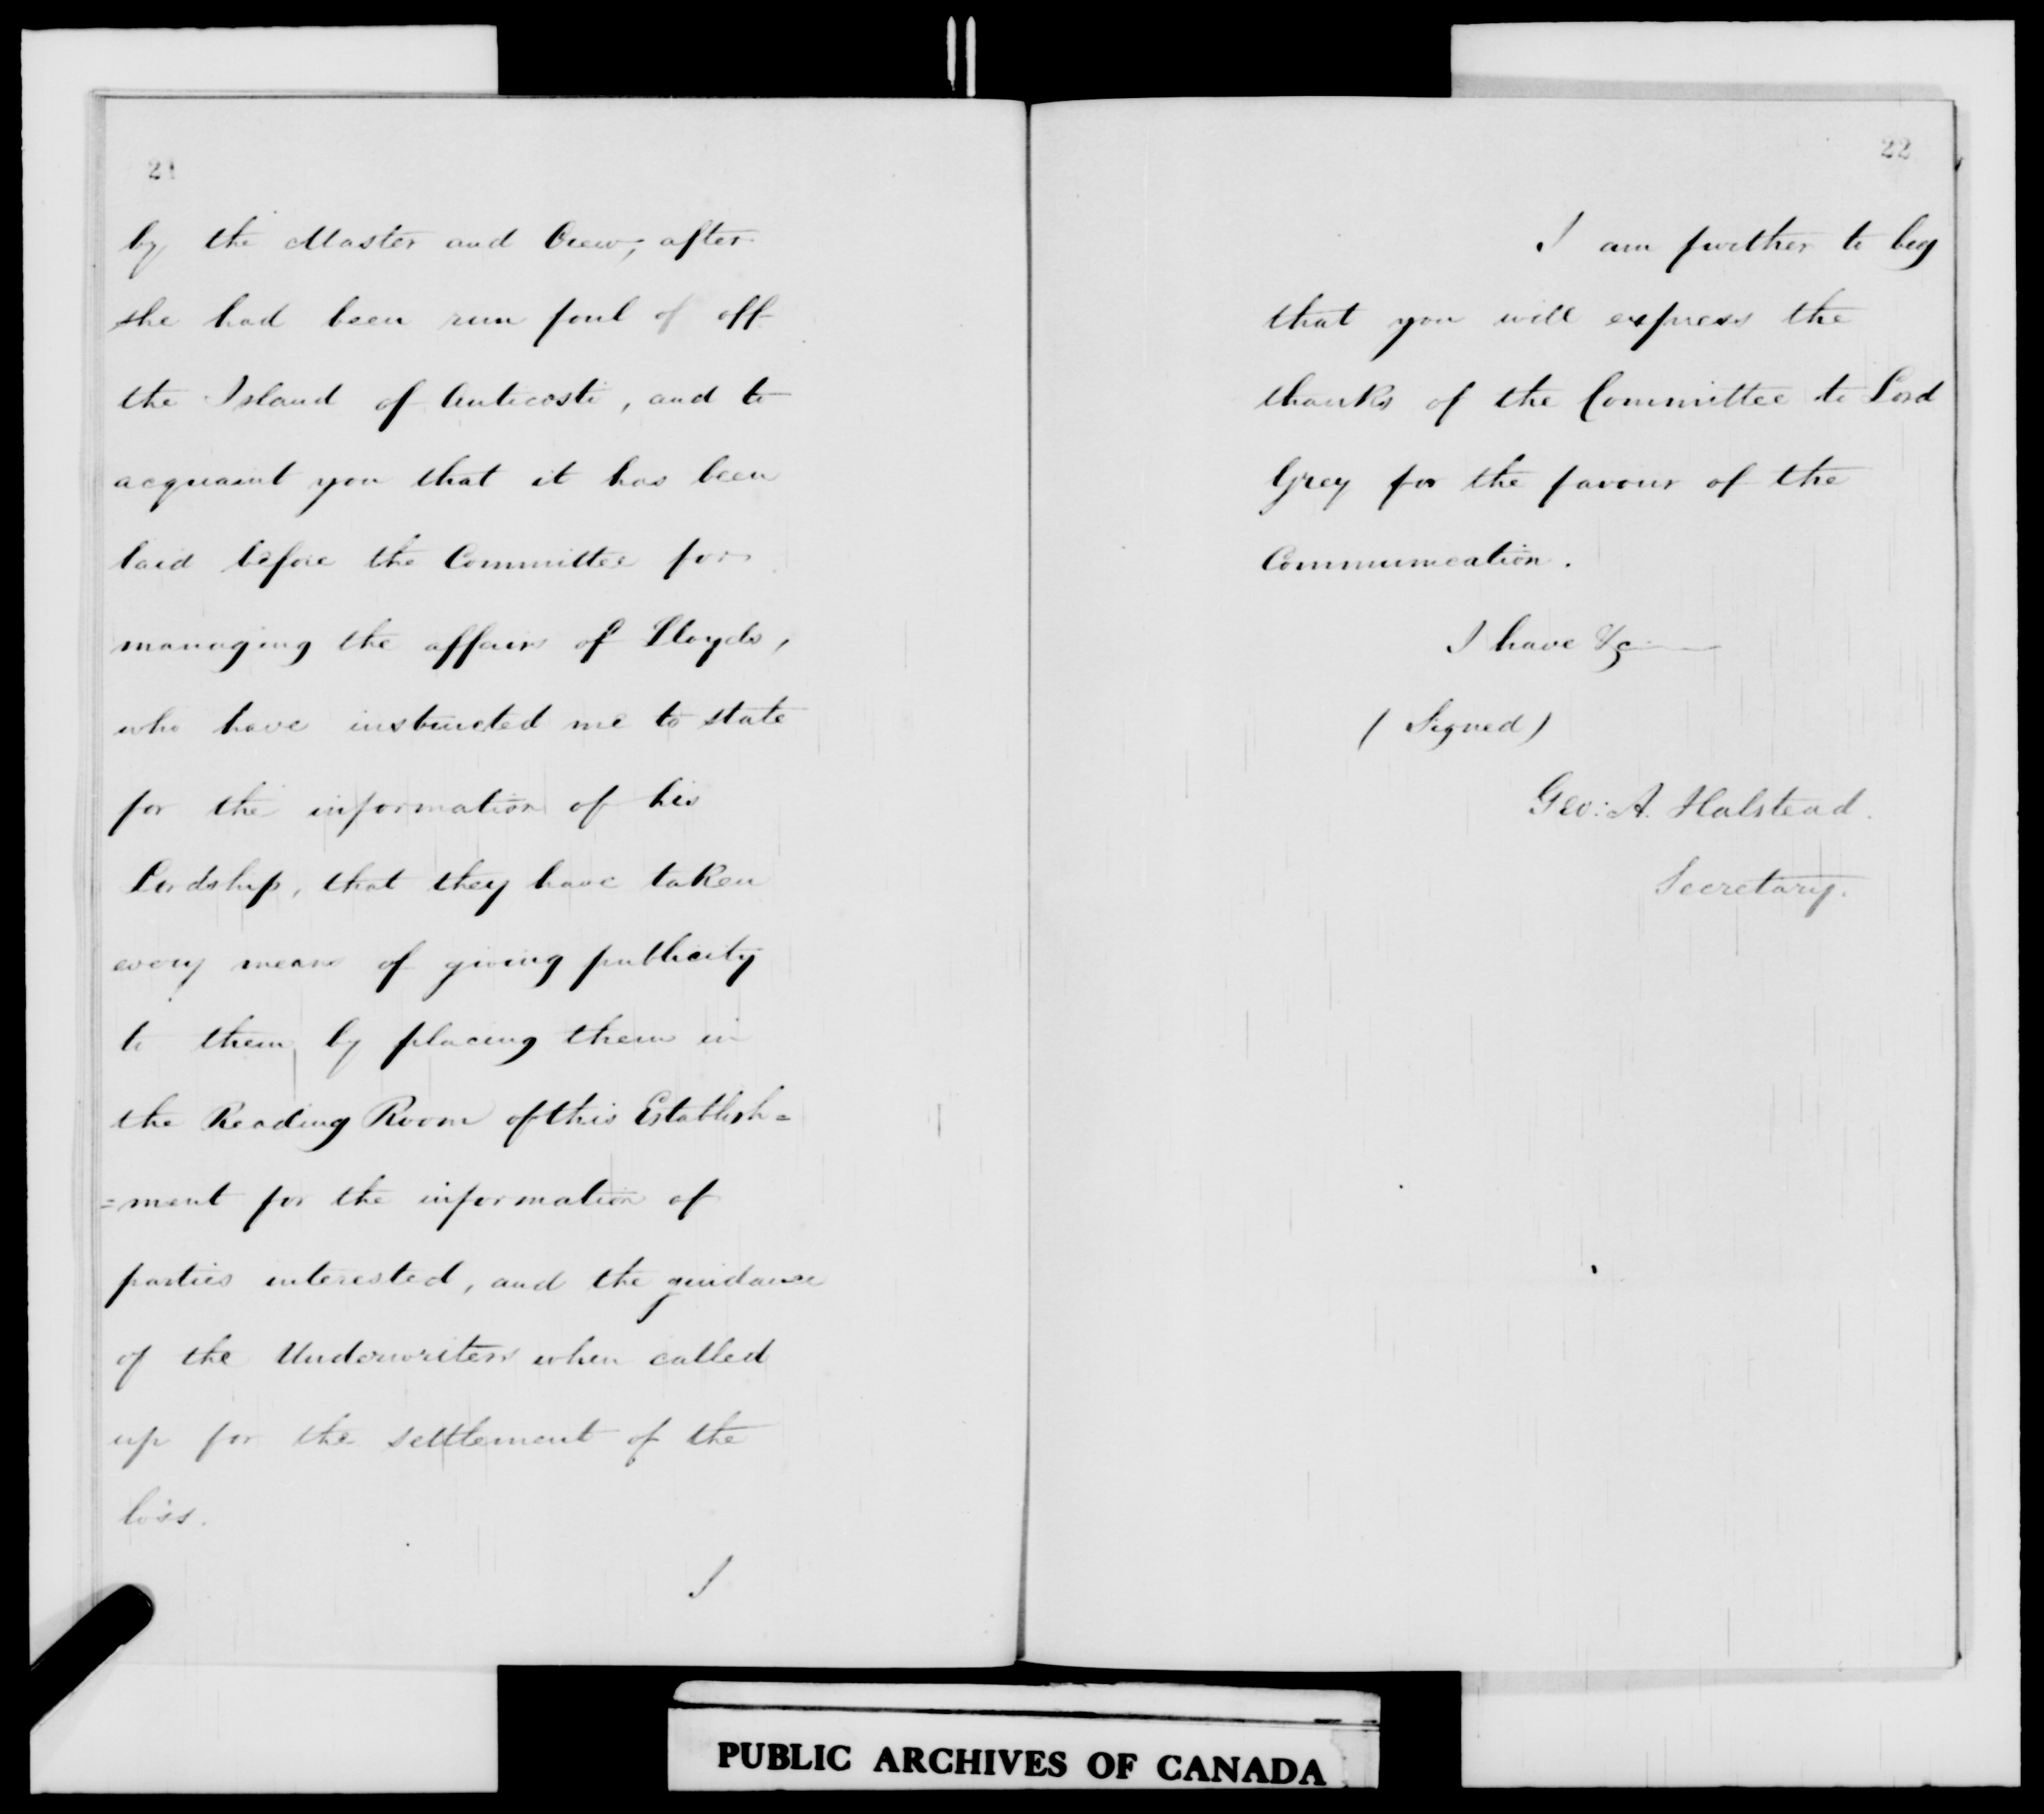 21
by the Master and Crew, after
she had been run foul of off
the Island of Anticosti, and to
acquaint you that it has been
laid before the Committee for
managing the affairs of Lloyds,
who have instructed me to state
for the information of his
Lordship, that they have taken
every means of giving publicity
to them, by placing them in
the Reading Room of this Establish=
=ment for the information of
parties interested, and the guidance
of the Underwriters when called
up for the settlement of the
loss.
I
22
I am further to beg
that you will express the
thanks of the Committee to Lord
Grey for the favour of the
Communication.
I have &c
(Signed)
Geo: A. Halstead.
Secretary.
PUBLIC ARCHIVES OF CANADA